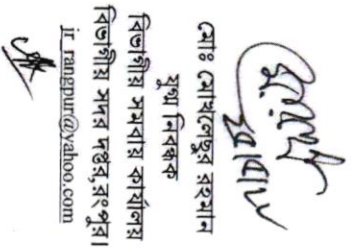 মোঃ মোখলেছুর রহমান
যুগ্ম নিবন্ধক
বিভাগীয় সমবায় কার্যালয়
বিভাগীয় সদর দপ্তর,রংপুর।
jr_rangpur@yahoo.com